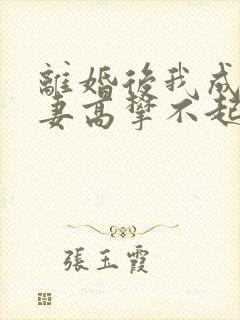 離婚後我成
妻高攀不起
張玉霞